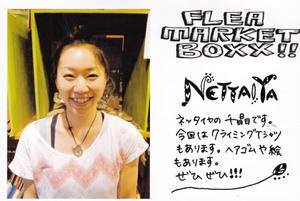 FLEA
MARKET
BOXX!!
NETTAI YA
ネッタイヤの千晶です。
今回はクライミングTシャツ
もあります。ヘアゴムや絵
もあります。
ぜひぜひ!!!